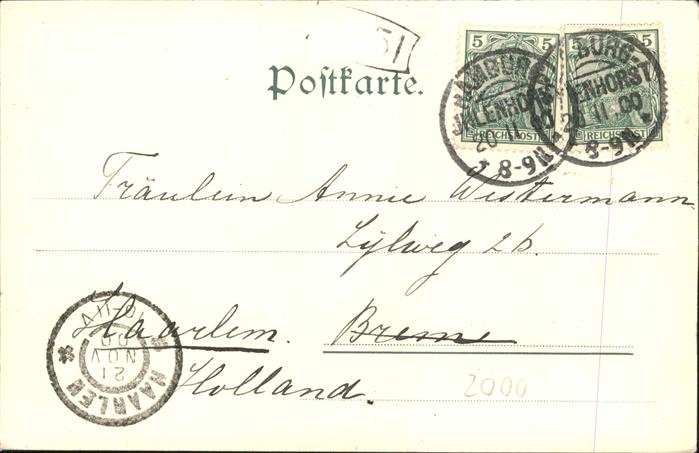 51
Postkarte.
5 5 5 5
REICHSPOST REICHSPOST
HAMBURG-
UHLENHORST
20 11 00
8-9N
BURG-
LENHORST
20 11 00
8-9N
Fräulein Annie Westermann
Zijlweg 2b.
Haarlem. Breme
Holland.
HAARLEM
21
NOV
00
10-11V
2000